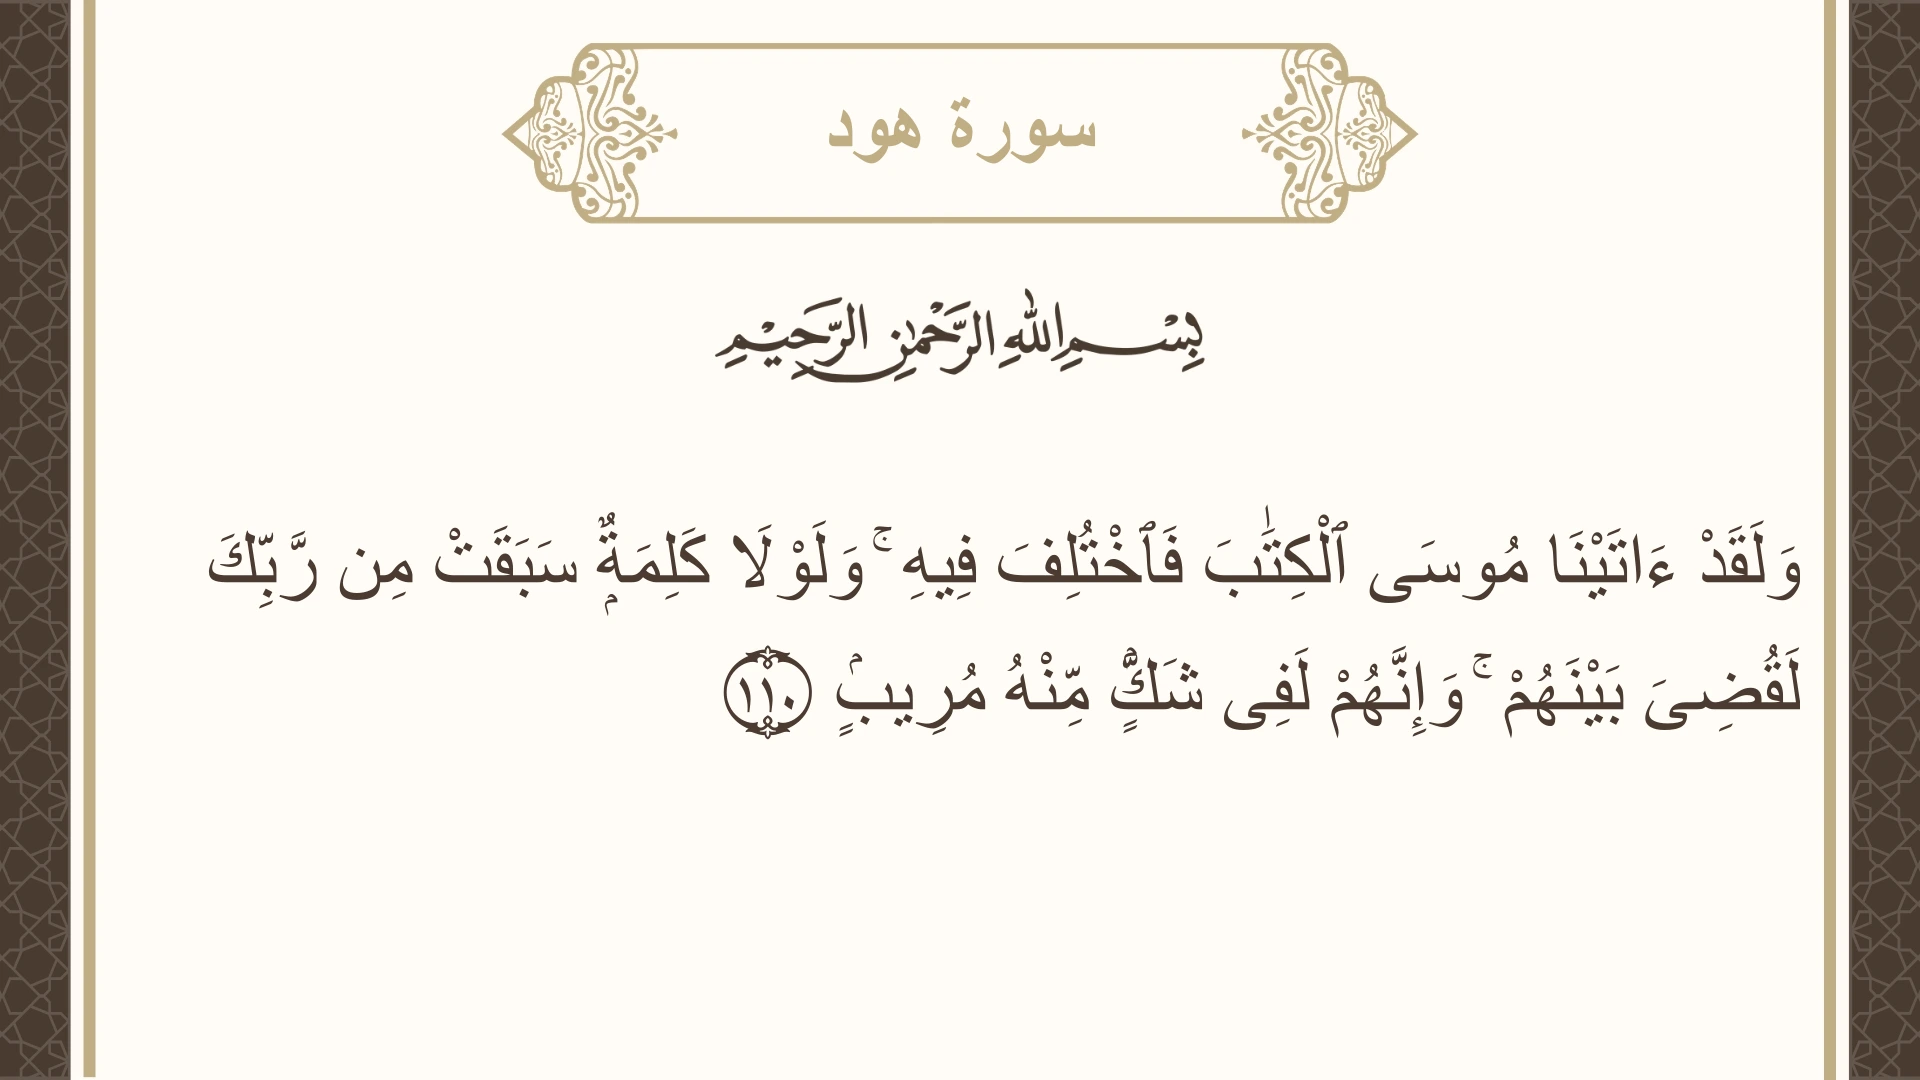 سورة هود
بِسْمِ اللهِ الرَّحْمٰنِ الرَّحِيْمِ
وَلَقَدْ ءَاتَيْنَا مُوسَى ٱلْكِتَٰبَ فَٱخْتُلِفَ فِيهِ ۚ وَلَوْلَا كَلِمَةٌۭ سَبَقَتْ مِن رَّبِّكَ
لَقُضِىَ بَيْنَهُمْ ۚ وَإِنَّهُمْ لَفِى شَكٍّۢ مِّنْهُ مُرِيبٍۢ ١١٠